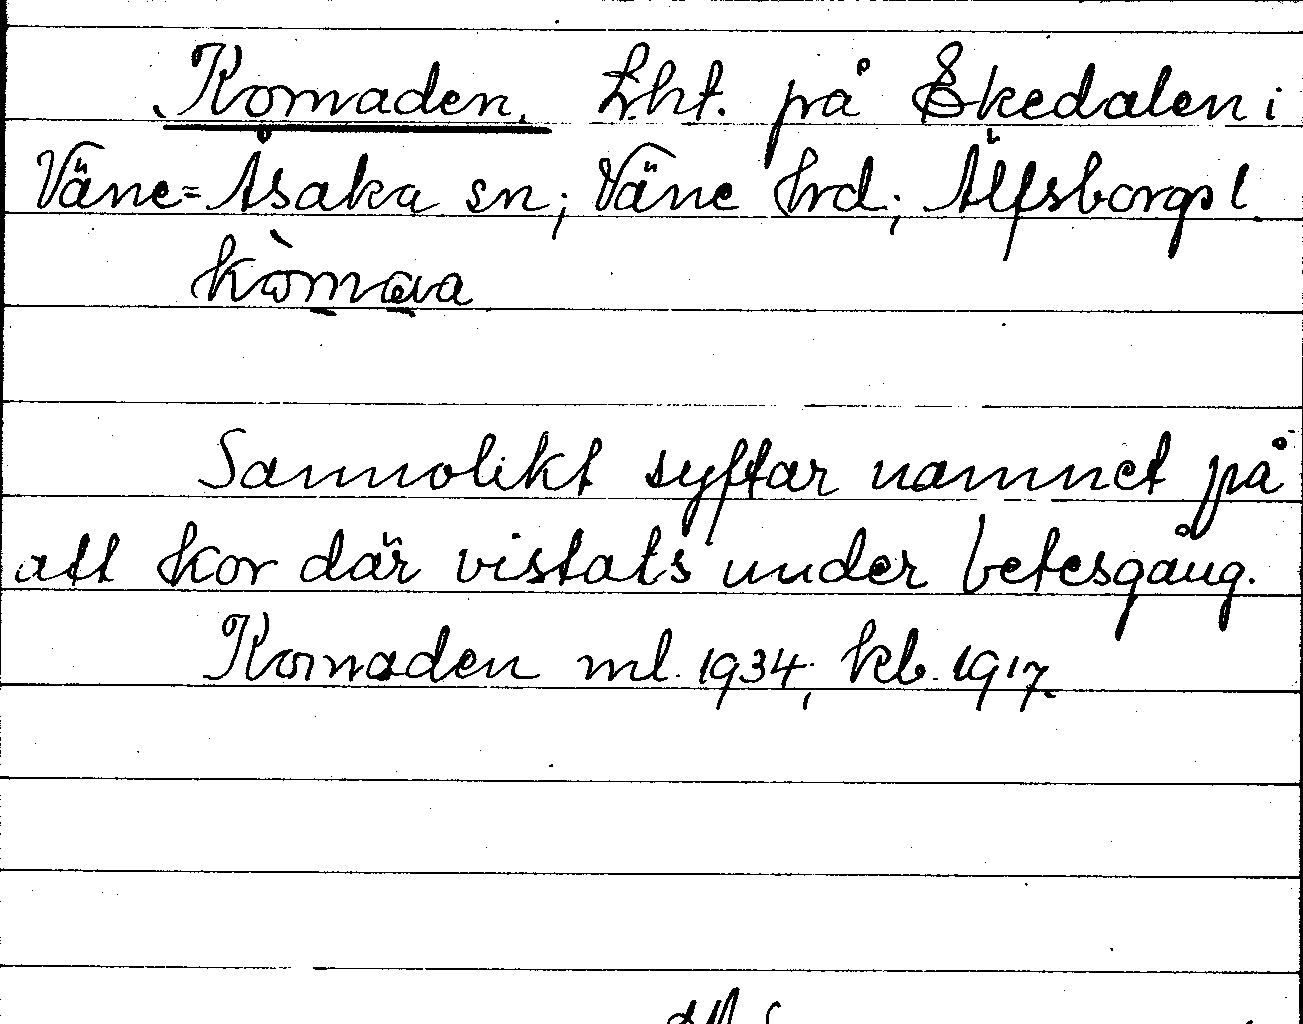 Komaden. Lht. på Ekedalen i
Väne=Åsaka sn; Väne hrd; Älfsborgs l.
Sannolikt syftar namnet på
att kor där vistats under betesgång.
Komaden ml. 1934; kb. 1917.